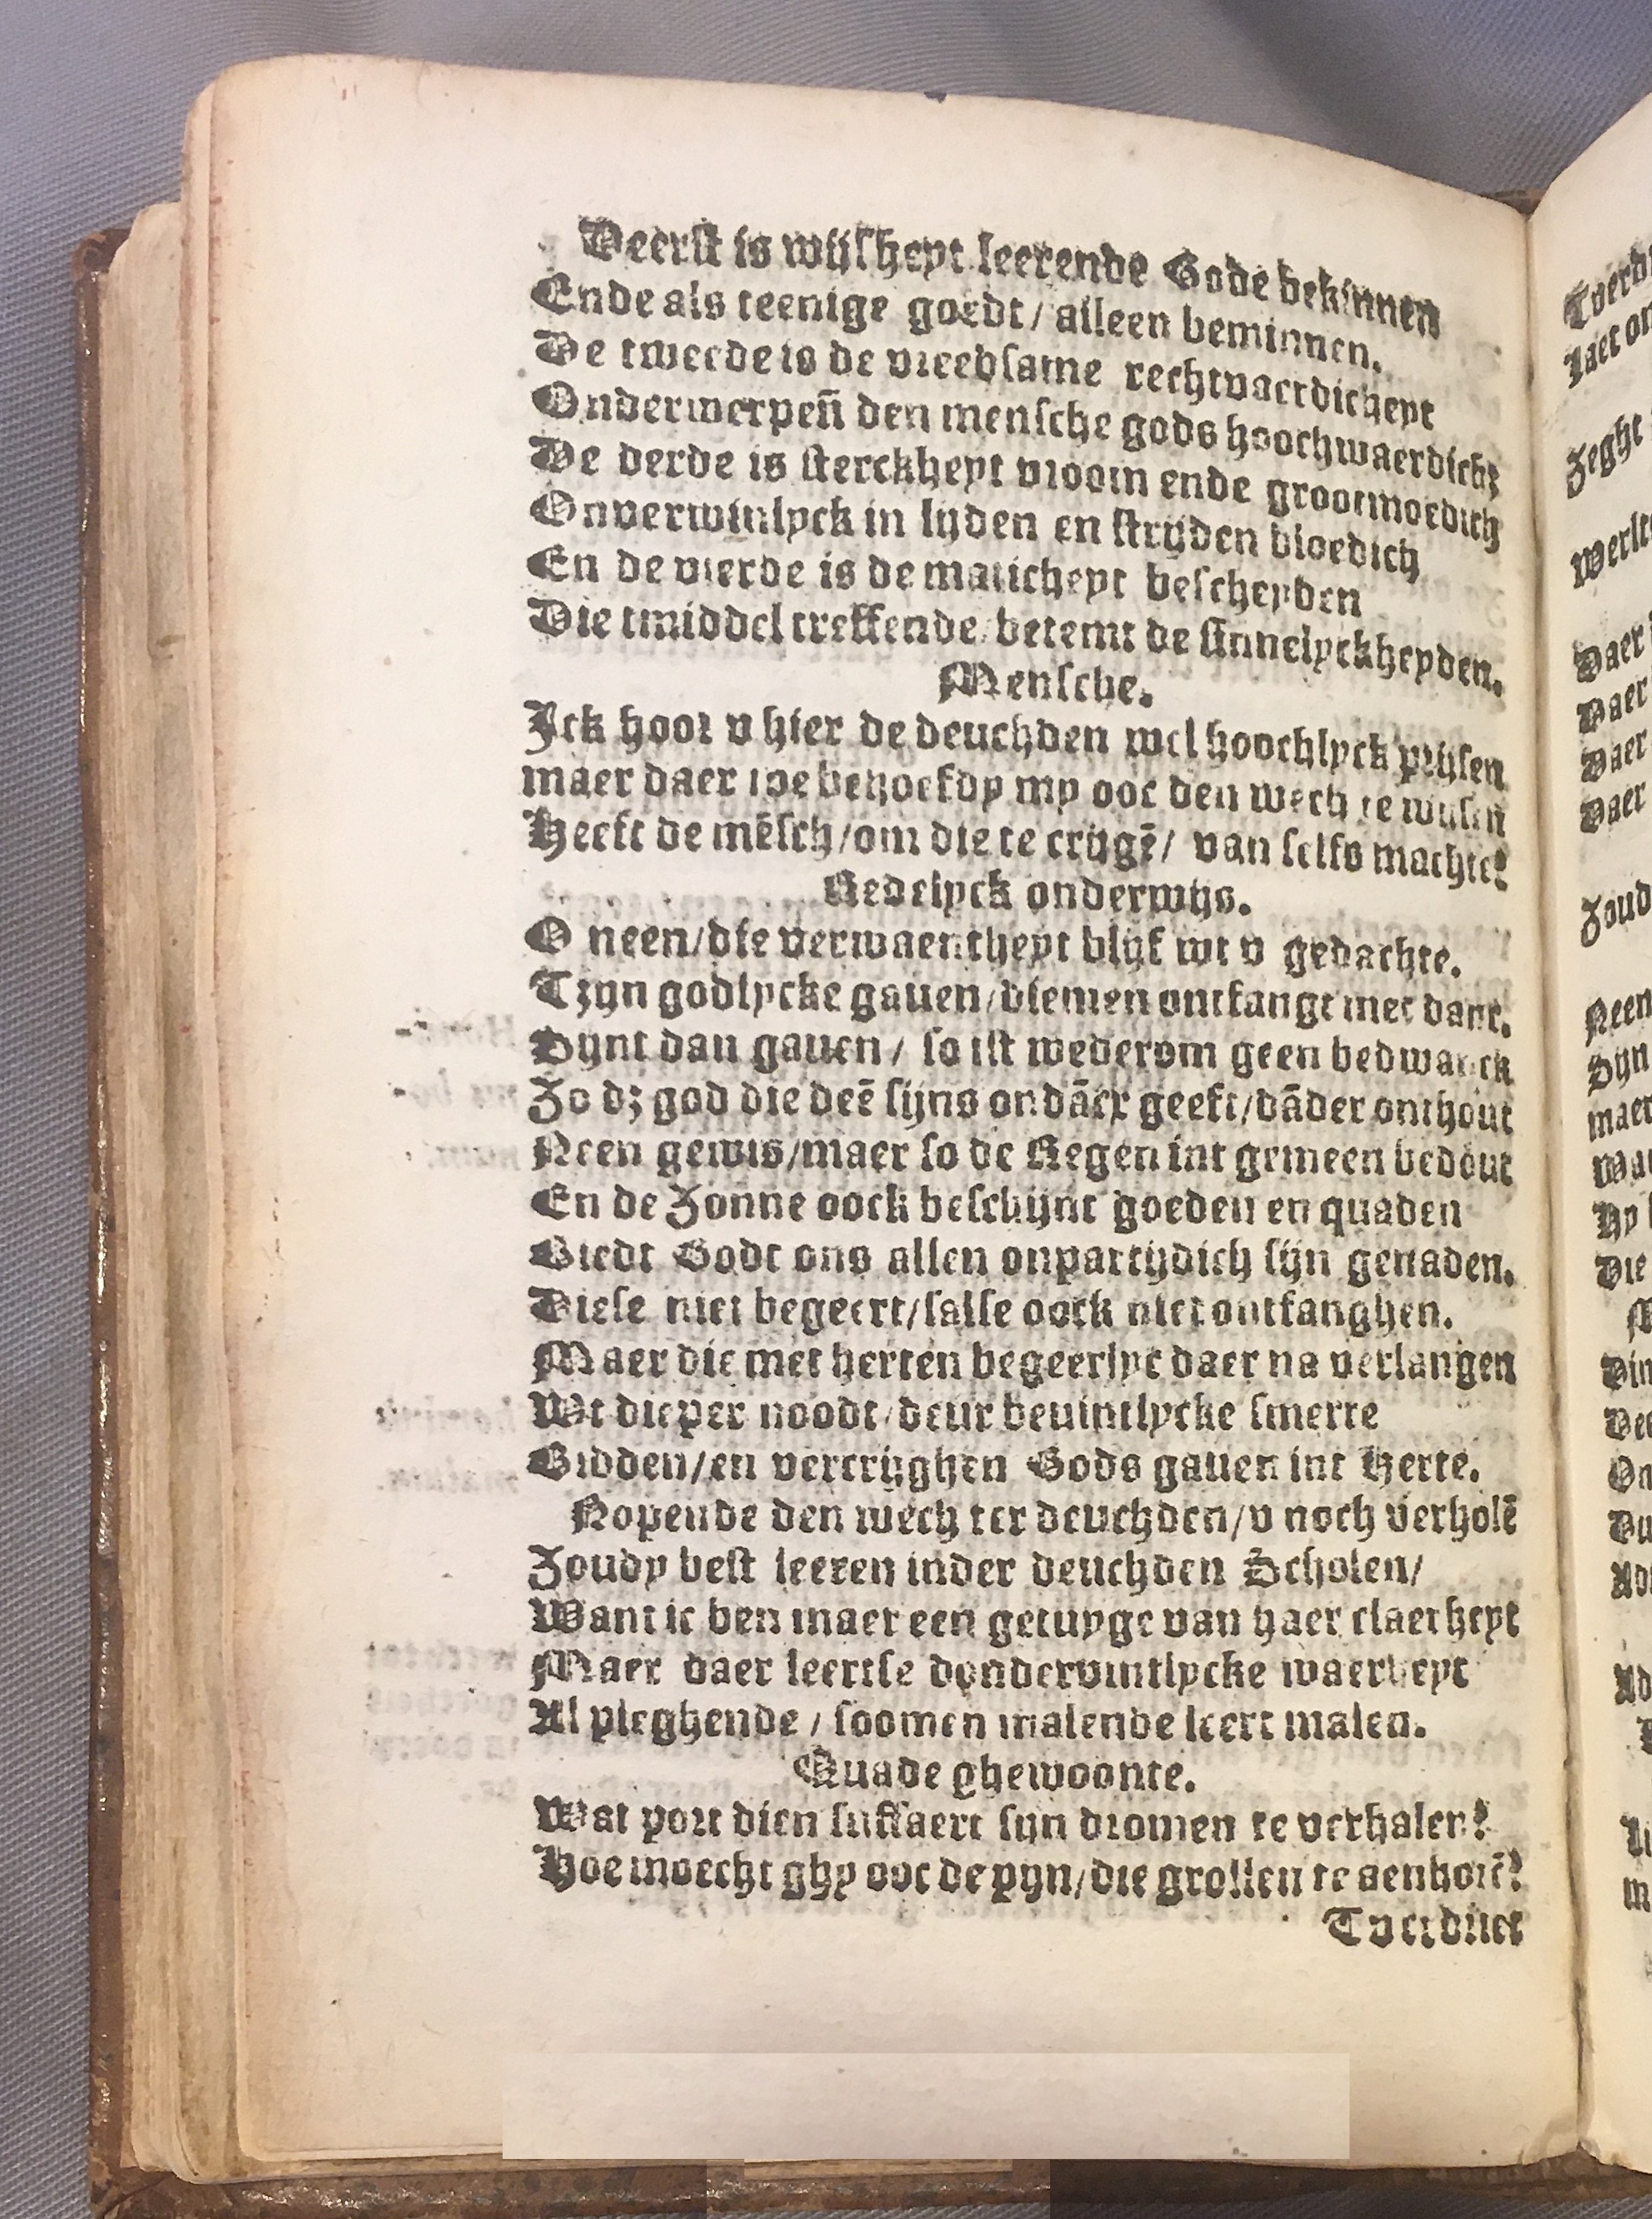 Deerst is wijsheyt leerende Gode bekinnen
Ende als teenige goedt / alleen beminnen.
De tweede is de vreedsame rechtvaerdicheyt
Onderwerpeñ den mensche gods hoochwaerdichz
De derde is sterckheyt vroom ende grootmoedich
Onverwinlyck in lijden en strijden bloedich
En de vierde is de maticheyt bescheyden
Die tmiddel treffende / betemt de sinnelyckheyden.
Mensche.
Ick hoor v hier de deuchden wel hoochlyck prijsen
maer daer me behoefdy my ooc den wech te wijsen
Heeft de mēsch / om die te crijgē / van selfs machte?
Redelyck onderwijs.
O neen / die verwaentheyt blijf wt v gedachte.
Tzyn godlycke gauen / diemen ontfangt met danc.
Zynt dan gauen / so ist wederom geen bedwanck
Zo dz god die deē sijns ondācx geeft / dāder onthout
Neen gewis / maer so de Regen int gemeen bedout
En de Zonne oock beschijnt goeden en quaden
Biedt Godt ons allen onpartijdich sijn genaden.
Diese niet begeert / salse oock niet ontfanghen.
Maer die met herten begeerlyc daer na verlangen
Wt dieper noodt / deur bevintlycke smerte
Bidden / en vercrijghen Gods gauen int Herte.
Nopende den wech ter deuchden / v noch verholē
Zoudy best leeren inder deuchden Scholen /
Want ic ben maer een getuyge van haer claerheyt
Maer daer leertse dondervintlycke waerheyt
Al pleghende / soomen malende leert malen.
Quade ghewoonte.
Wat port dien suffaert sijn dromen te verhalen?
Hoe moecht ghy ooc de pyn / die grollen te aenhorē?
Tverdriet